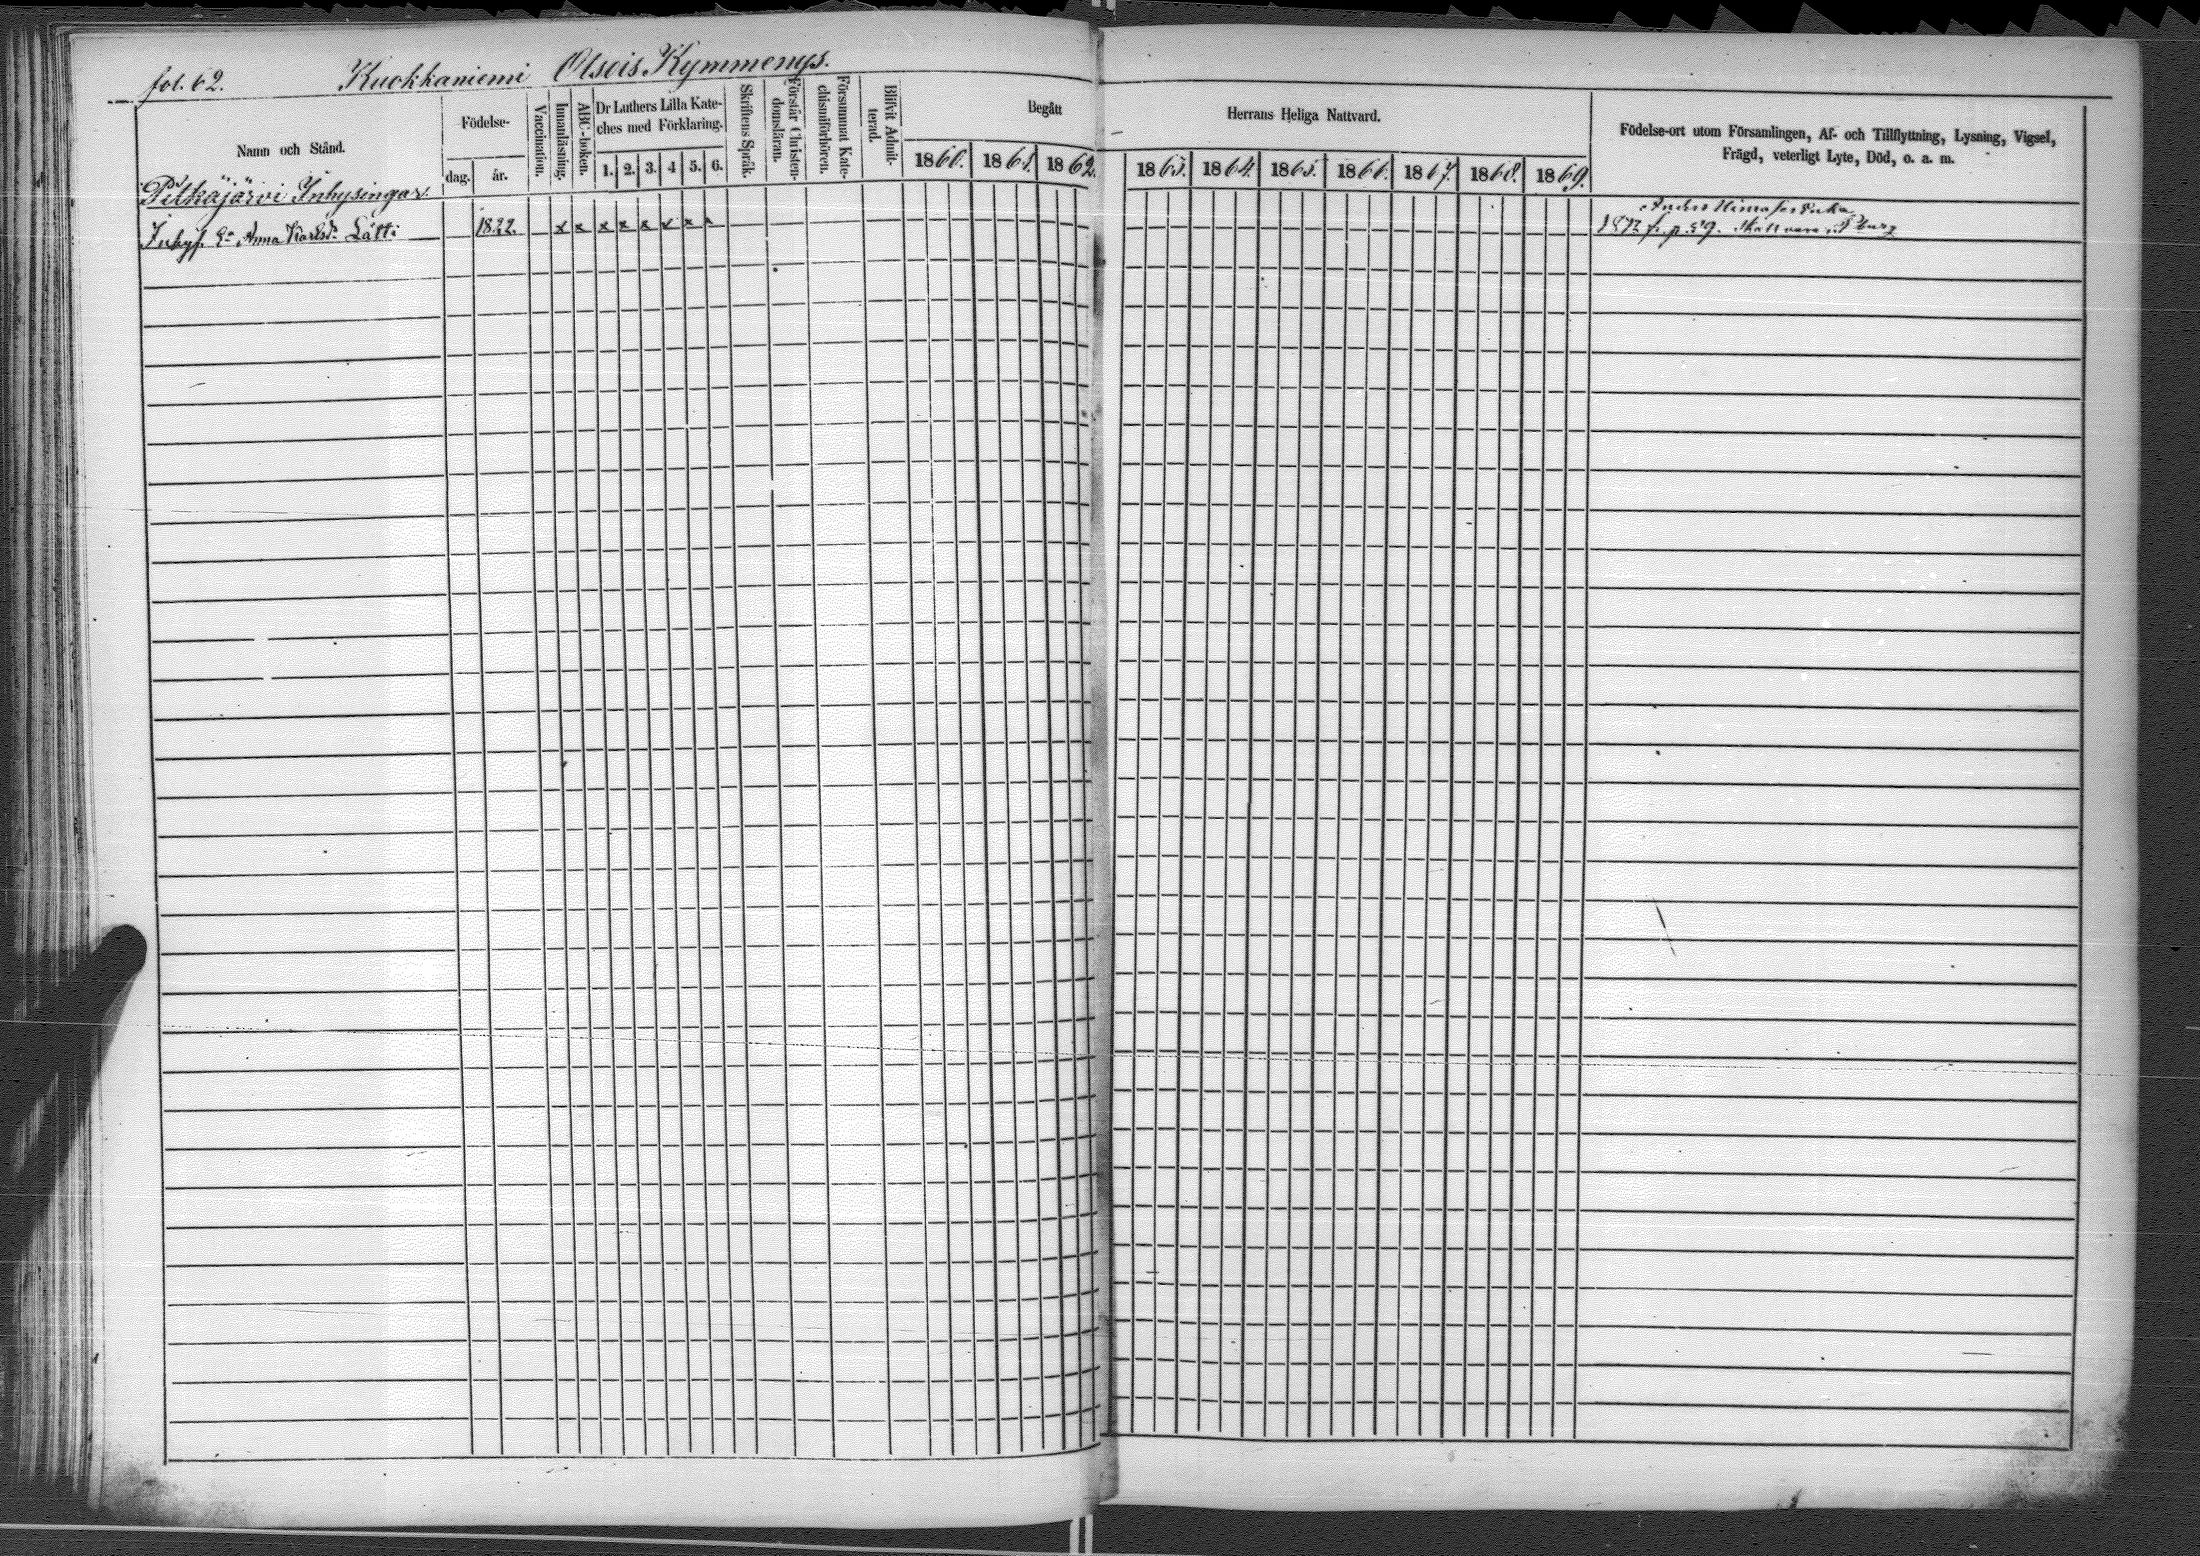 fol. 62. Kuokkaniemi Otsois Kymmenys.
Namn och Stånd.
Födelse-
dag. år.
Vaccination.
Innanläsning.
ABC-boken.
Dr Luthers Lilla Kate-
ches med Förklaring.
1. 2. 3. 4 5. 6.
Skriftens Språk.
Förstår Christen-
domsläran.
Försummat Kate-
chismiförhören.
Blifvit Admit-
terad.
Begått Herrans Heliga Nattvard.
1860. 1861. 1862. 1863. 1864. 1865. 1866. 1867. 1868. 1869.
Födelse-ort utom Församlingen, Af- och Tillflyttning, Lysning, Vigsel,
Frägd, veterligt Lyte, Död, o. a. m.
Pitkäjärvi Inhysingar
Inhys. Anna Lätti 1822. x x x x x x x x
Anders
1872